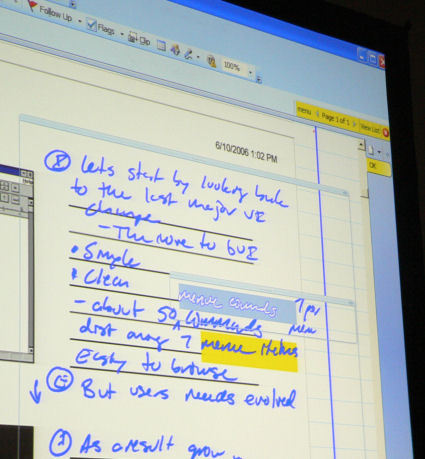 Follow Up
Flags
Clip
100%
menu
Page 1 of 1
View List
OK
6/10/2006 1:02 PM
8 Lets start by looking back
to the last major UI
change
- The move to GUI
• Simple
• Clean
menue counds
7 per
menu
- about 50 Commands
dist among 7 menue items
Easy to browse
But users needs evolved
As a result grow